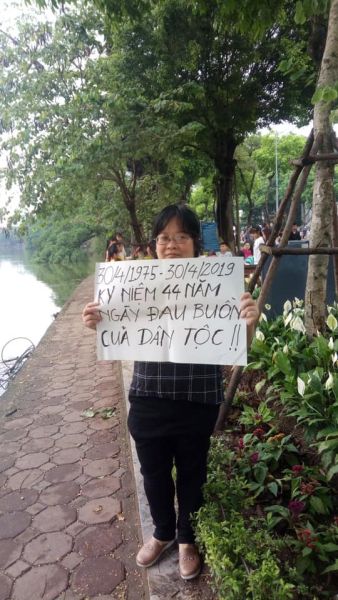 30/4/1975-30/4/2019
KỶ NIỆM 44 NĂM
NGÀY ĐAU BUỒN
CỦA DÂN TỘC !!